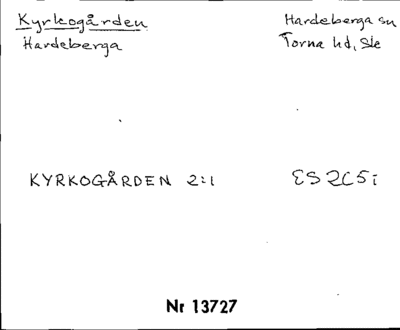 Kyrkogården
Hardeberga
Hardeberga sn
Torna hd, Ske
KYRKOGÅRDEN 2:1
ES2C5i
Nr 13727